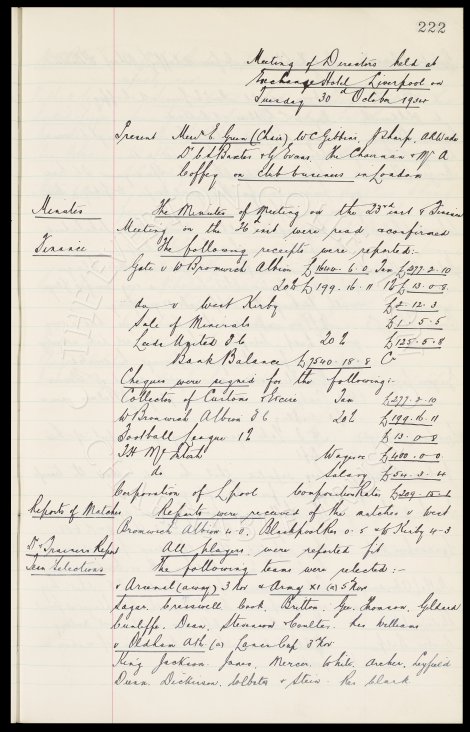 222
Meeting of Directors held at
Exchange Hotel Liverpool on
Tuesday 30th October 1934
Present Messrs E Green (Chair) W C Gibbins, J Sharp, A Wade
Dr C S Baxter & G Evans. The Chairman & Mr A
Coffey on club business in London
Minutes The Minutes of Meeting on the 23rd inst & Finance
Meeting on the 26th inst were read & confirmed
Finance The following receipts were reported:-
Gate v W Bromwich Albion £1640. 6. 0 Tax £277. 2. 10
20% £199. 16. 11 1% £13. 0. 8
do v West Kirby £2. 12. 3
Sale of Minerals £1. 5. 5
Leeds United F C 20% £125. 5. 8
Bank Balance £7540. 18. 8 Cr
Cheques were signed for the following:-
Collector of Customs & Excise Tax £277. 2. 10
W Bromwich Albion F C 20% £199. 16. 11
Football League 1% £13. 0. 8
T H McIntosh Wages £400. 0. 0
do Salary £54. 3. 4
Corporation of Lpool £209. 15. 1
Reports of Matches Reports were received of the matches v West
Bromwich Albion 4-0, Blackpool Res 0-5 & W Kirby 4-3
Dr & Trainers Report All players were reported fit
Team Selections The following teams were selected:-
v Arsenal (away) 3 Nov & Army XI (a) 5th Nov
Sagar, Cresswell, Cook, Britton, Gee, Thomson, Geldard
Cunliffe, Dean, Stevenson & Coulter. Res Williams
v Oldham Ath. (a) Lancs Cup 3 Nov
King, Jackson, Jones, Mercer, White, Archer, Leyfield
Dunn, Dickinson, Webster & Stein. Res Clark